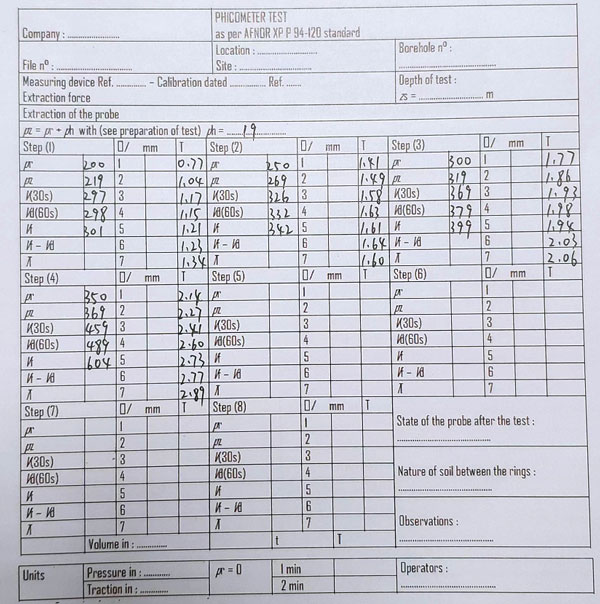 PHICOMETER TEST
Company : ............... as per AFNOR XP P 94-120 standard
Location : ............... Borehole nº :
File nº : ............... Site : ...............
Measuring device Ref. ............ – Calibration dated ............ Ref. ...... Depth of test :
Extraction force = ............... m
Extraction of the probe
= + with (see preparation of test) = ...... 19
Step (1) mm T Step (2) mm T Step (3) mm T
200 1 0.77 250 1 1.41 300 1 1.77
219 2 1.04 269 2 1.49 319 2 1.86
(30s) 297 3 1.17 (30s) 326 3 1.58 (30s) 369 3 1.93
(60s) 298 4 1.15 (60s) 332 4 1.63 (60s) 379 4 1.98
301 5 1.21 342 5 1.61 399 5 1.94
6 1.23 6 1.64 6 2.03
7 1.34 7 1.60 7 2.06
Step (4) mm T Step (5) mm T Step (6) mm T
350 1 2.14 1 1
369 2 2.27 2 2
(30s) 459 3 2.41 (30s) 3 (30s) 3
(60s) 489 4 2.60 (60s) 4 (60s) 4
604 5 2.73 5 5
6 2.77 6 6
7 2.89 7 7
Step (7) mm T Step (8) mm T State of the probe after the test :
1 1
2 2
(30s) 3 (30s) 3
(60s) 4 (60s) 4 Nature of soil between the rings :
5 5
6 6 Observations :
7 7
Volume in : ............ t T
Units Pressure in : ......... = 0 1 min Operators :
Traction in : ......... 2 min